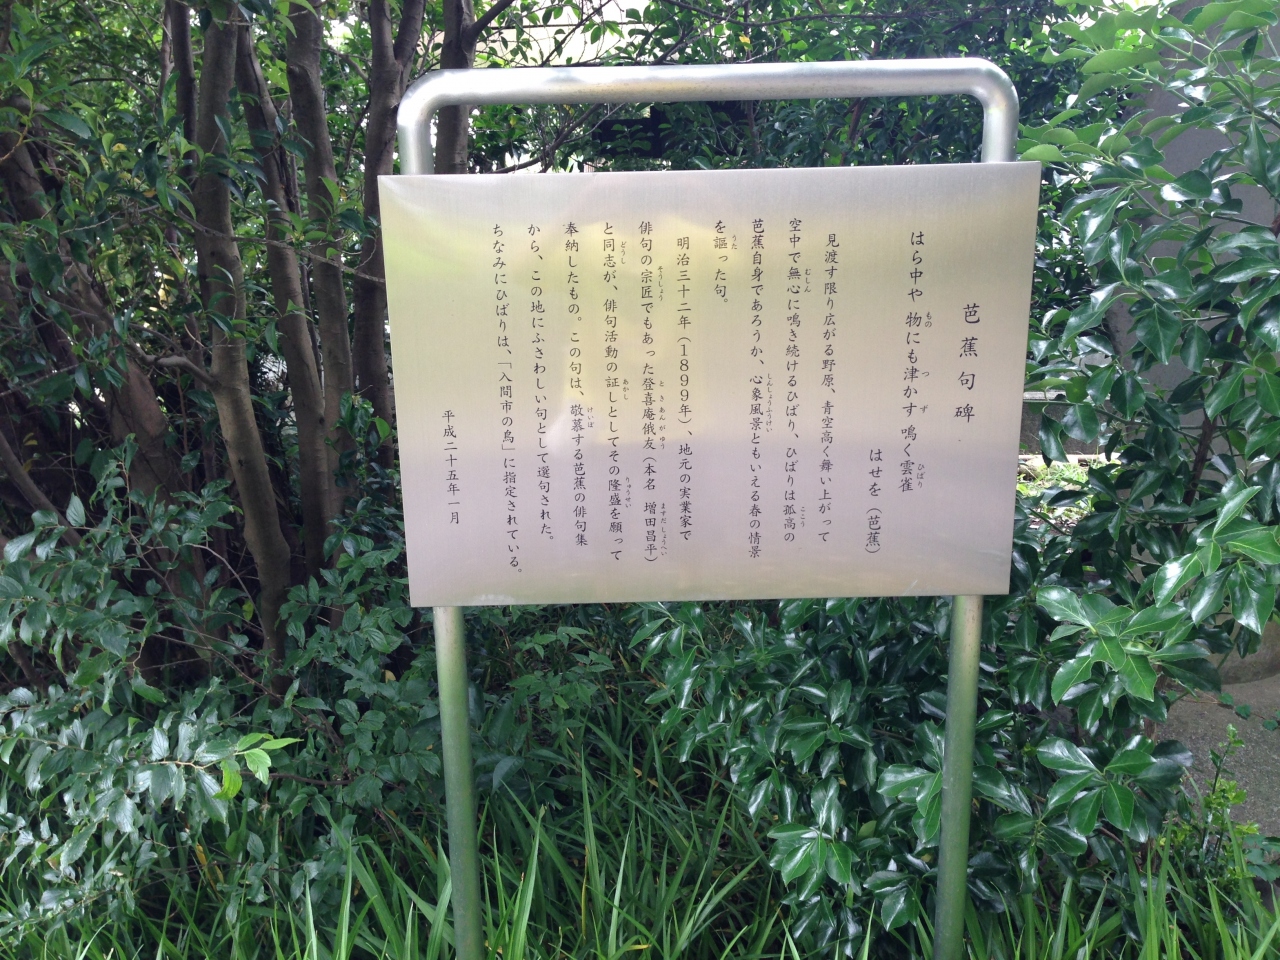 芭蕉句碑
はら中や 物にも津かず 鳴く雲雀
はせを（芭蕉）
見渡す限り広がる野原、青空高く舞い上がって
空中で無心に鳴き続けるひばり、ひばりは孤高の
芭蕉自身であろうか、心象風景ともいえる春の情景
を謳った句。
明治三十二年（1899年）、地元の実業家で
俳句の宗匠でもあった登喜庵俄友（本名 増田昌平）
と同志が、俳句活動の証しとしてその隆盛を願って
奉納したもの。この句は、敬慕する芭蕉の俳句集
から、この地にふさわしい句として選句された。
ちなみにひばりは、「入間市の鳥」に指定されている。
平成二十五年一月